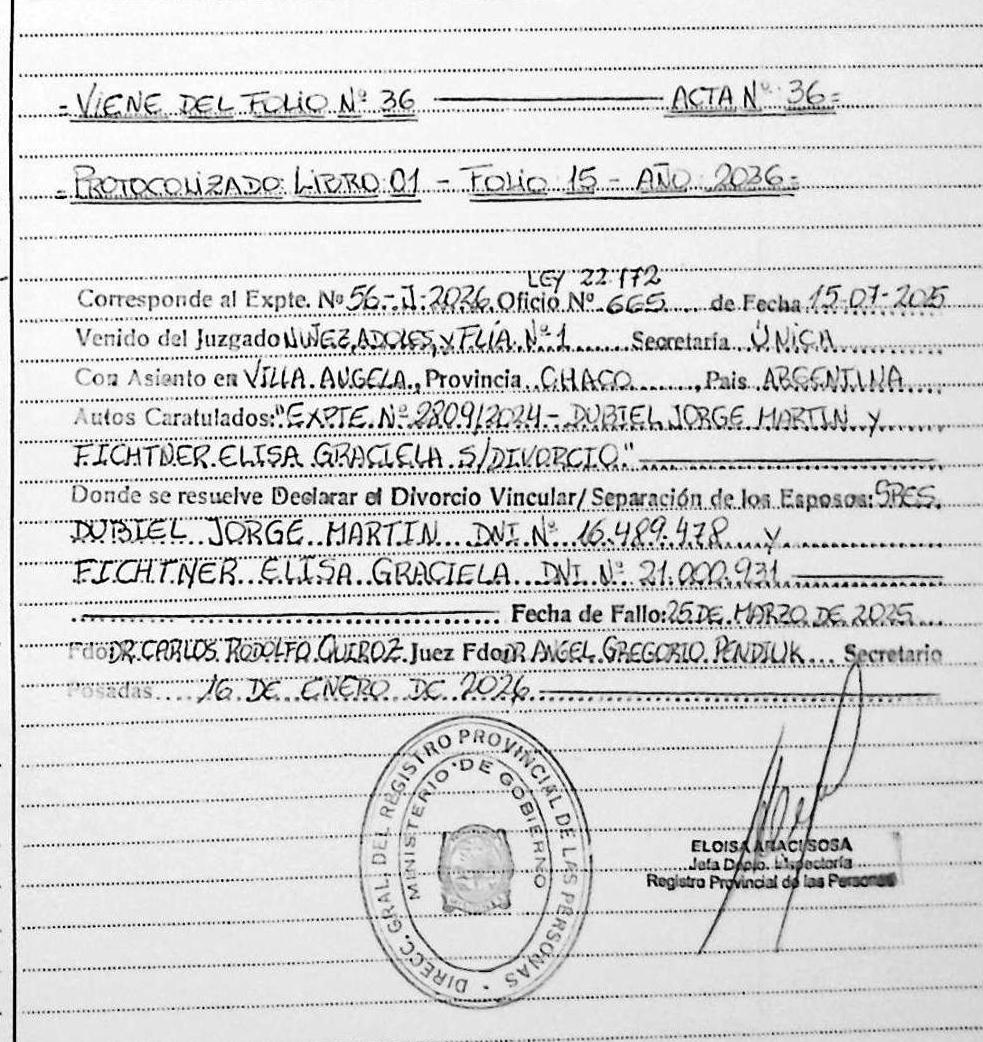 = VIENE DEL FOLIO Nº 36 ACTA Nº 36 =
= PROTOCOLIZADO: LIBRO: 01 - FOLIO 15 - AÑO 2036 =
LEY 22.172
Corresponde al Expte. Nº 56-J-2026 Oficio Nº 665 de Fecha 15-07-2025
Venido del Juzgado NIÑEZ, ADOLES, y FLÍA. Nº 1 Secretaría ÚNICA
Con Asiento en VILLA ANGELA, Provincia CHACO, Pais ARGENTINA
Autos Caratulados: "EXPTE. Nº 2809/2024 - DUBIEL JORGE MARTIN y
FICHTNER ELISA GRACIELA S/DIVORCIO"
Donde se resuelve Declarar el Divorcio Vincular/ Separación de los Esposos: SRES.
DUBIEL JORGE MARTIN DNI Nº 16.489.478 y
FICHTNER ELISA GRACIELA DNI Nº 21.000.931
Fecha de Fallo: 25 DE MARZO DE 2025
Fdo DR. CARLOS RODOLFO QUIROZ Juez Fdo DR ANGEL GREGORIO PENDIUK Secretario
Posadas 16 DE ENERO DE 2026
DIRECC. GRAL. DEL REGISTRO PROVINCIAL DE LAS PERSONAS
MINISTERIO DE GOBIERNO
ELOISA ARACI SOSA
Jefa Dpto. Inspectoría
Registro Provincial de las Personas